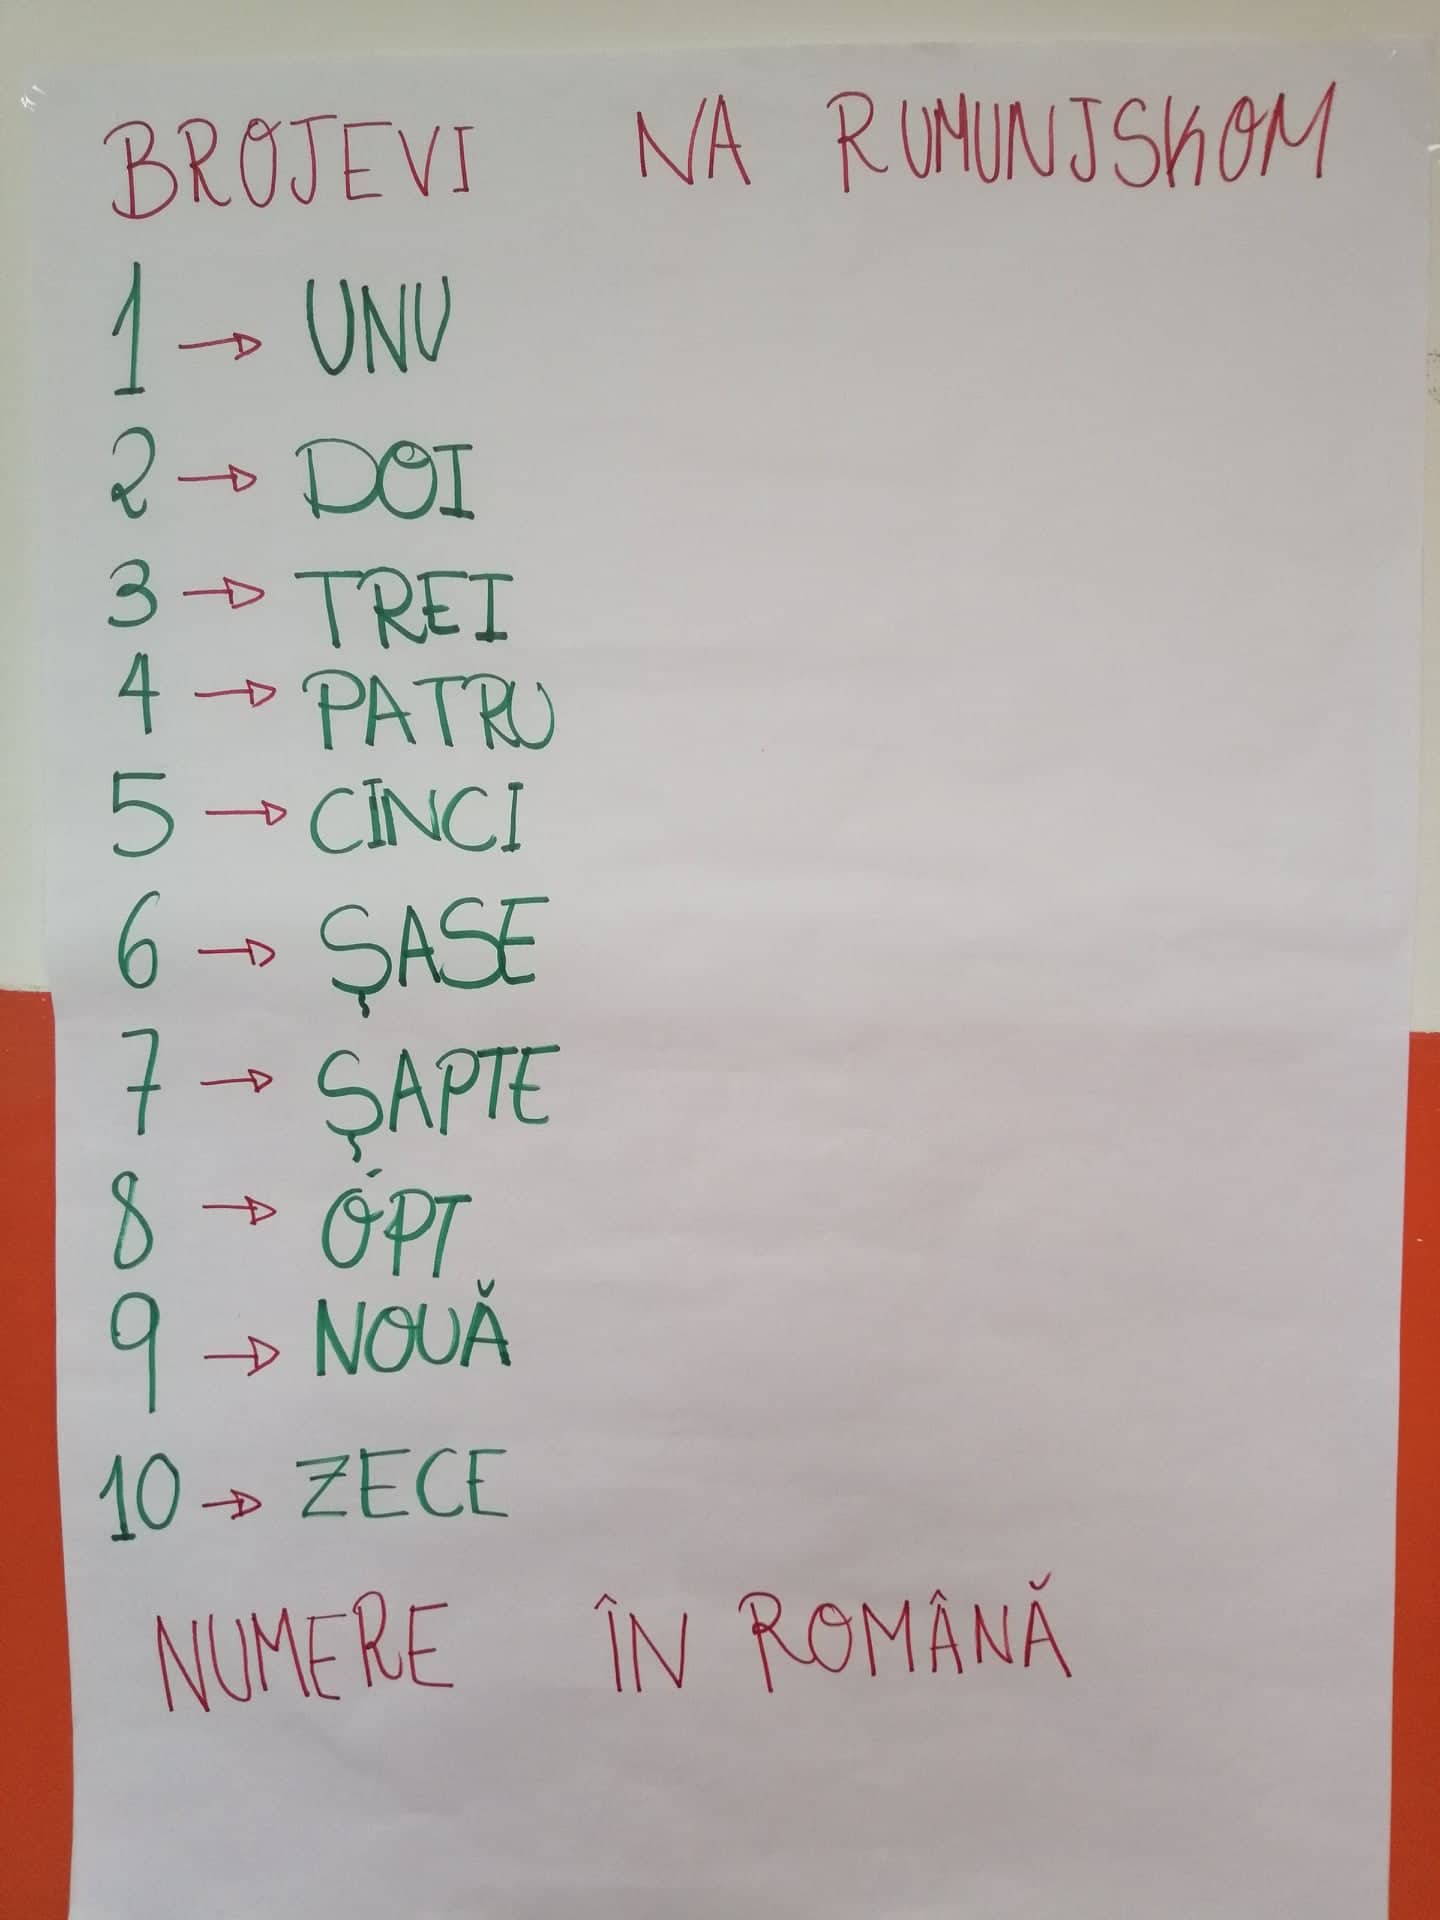 BROJEVI NA RUMUNJSKOM
1 → UNU
2 → DOI
3 → TREI
4 → PATRU
5 → CINCI
6 → ȘASE
7 → ȘAPTE
8 → OPT
9 → NOUĂ
10 → ZECE
NUMERE ÎN ROMÂNĂ